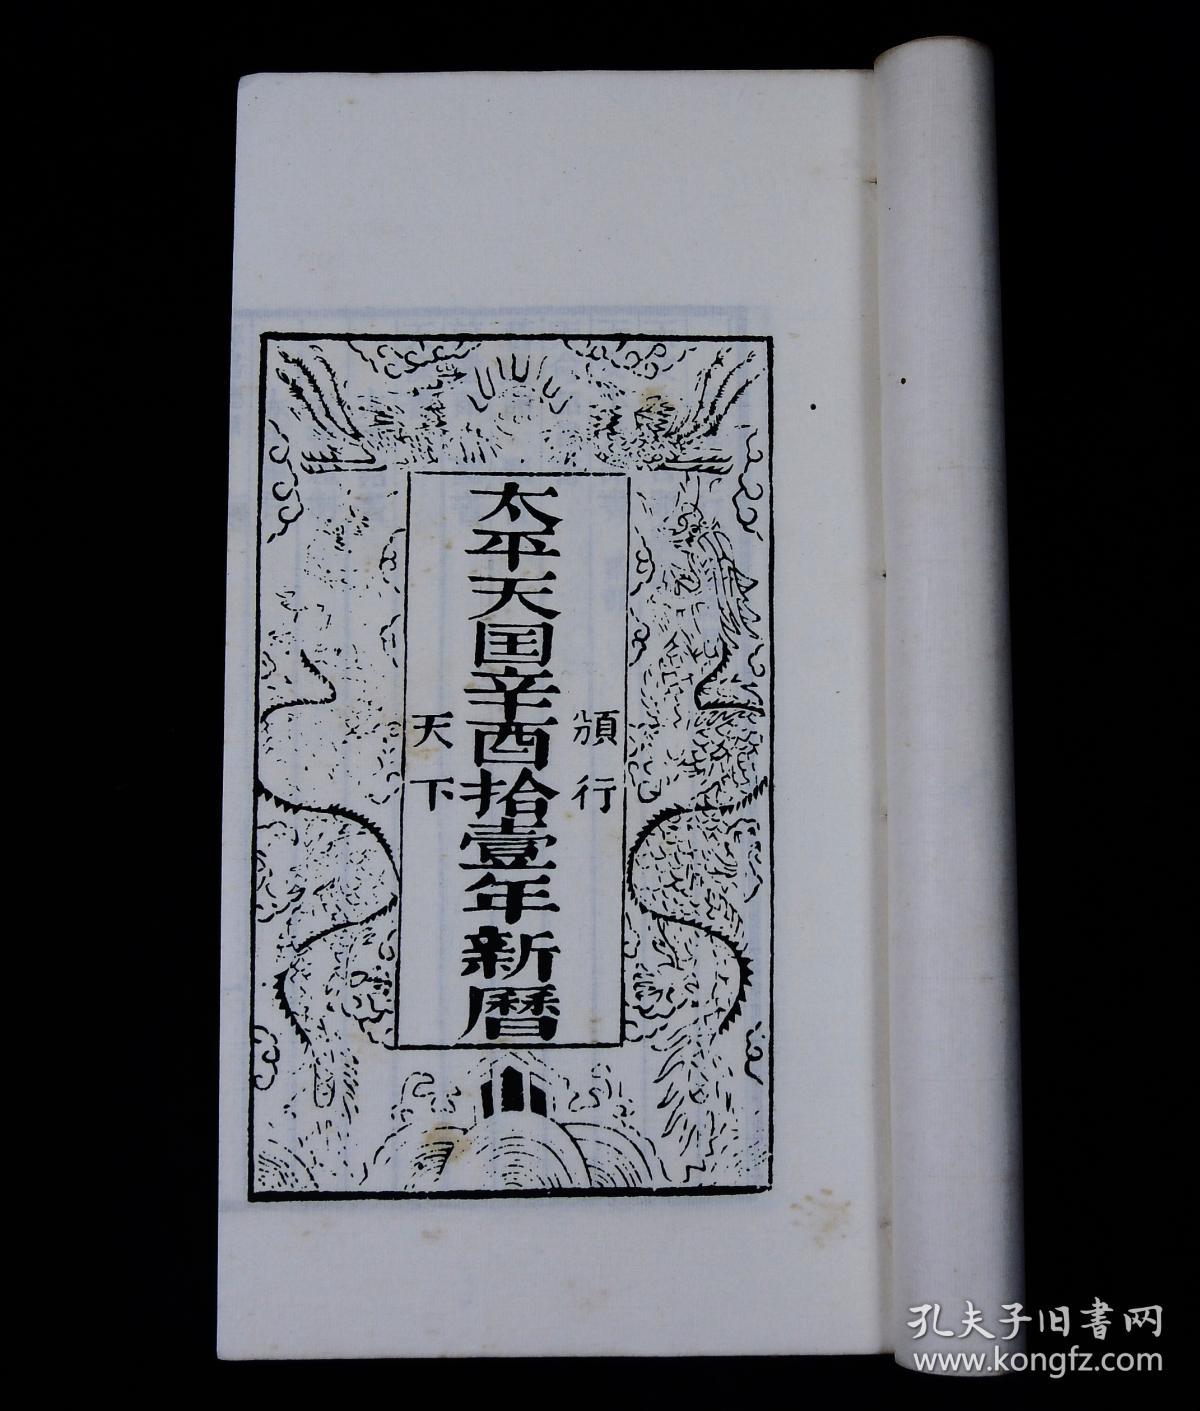 頒行
太平天囯辛酉拾壹年新曆
天下
孔夫子旧書网
www.kongfz.com